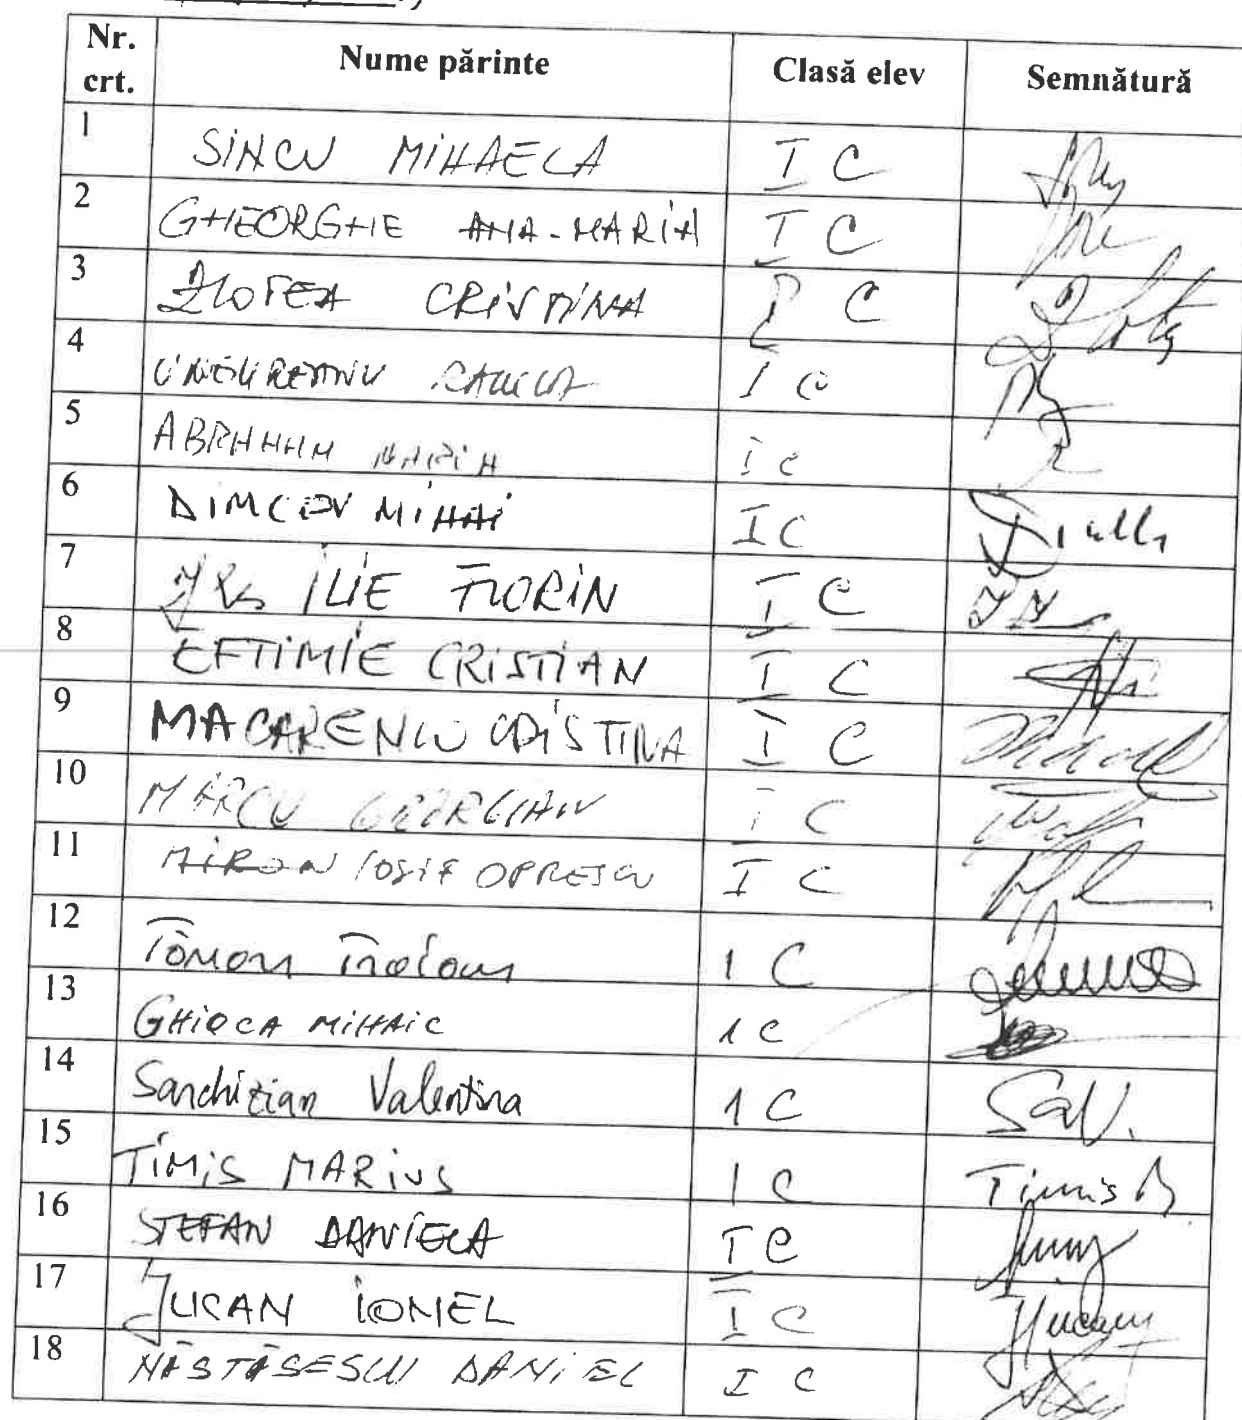 Nr. crt. Nume părinte Clasă elev Semnătură
1 SINCU MIHAELA I C
2 GHEORGHE ANA-MARIA I C
3 ZLOTEA CRISTINA I C
4 UNGUREANU I C
5 ABRAHAM MARIA I C
6 DIMCEV MIHAI I C
7 ILIE FLORIN I C
8 EFTIMIE CRISTIAN I C
9 MACARENCU CRISTINA I C
10 MARCU GEORGIAN I C
11 MIRON IOSIF OPRESCU I C
12 Toman Traian 1 C
13 GHIOCA MIHAIC 1 C
14 Sanchizian Valentina 1 C SaV.
15 TIMIS MARIUS 1 C Timis
16 STEFAN DANIELA I C
17 JUCAN IONEL I C Jucan
18 NĂSTĂSESCU DANIEL I C